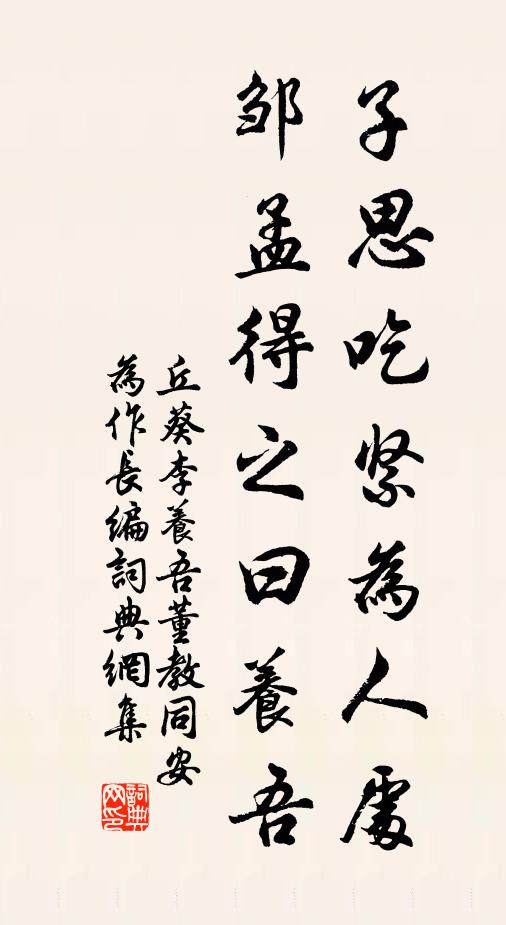 子思吃紧為人處
邹孟得之曰養吾
丘葵李養吾董教同安
為作長編詞典網集
詞典网印